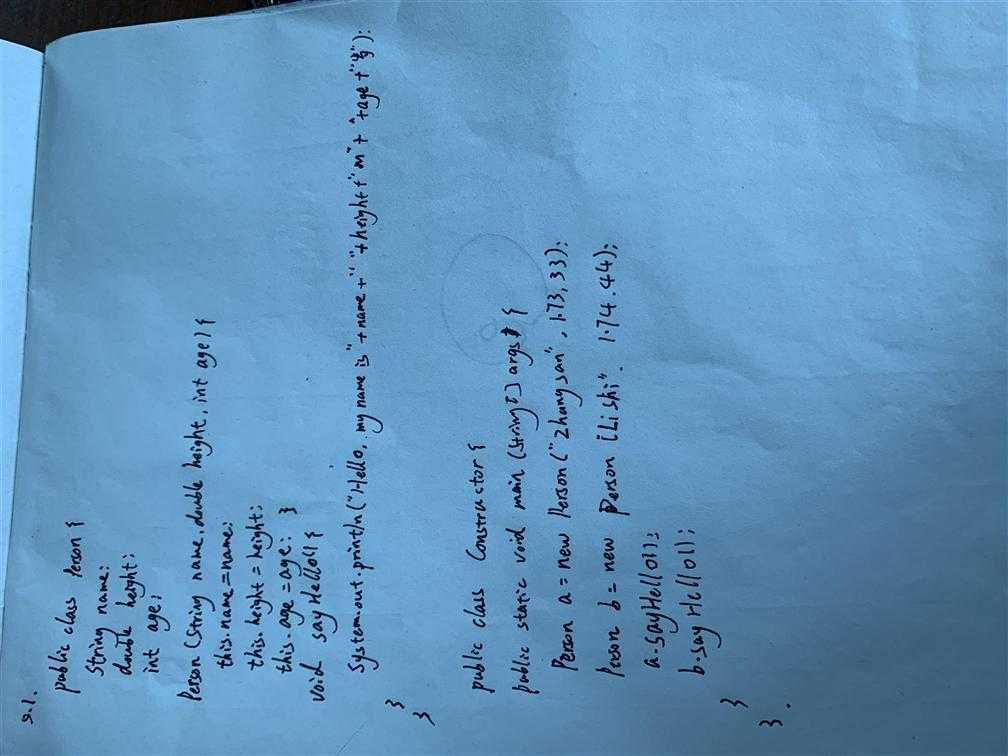 5.1.
public class Person {
String name;
double height;
int age;
Person (String name, double height, int age) {
this.name = name;
this.height = height;
this.age = age; }
void sayHello() {
System.out.println("Hello, my name is" + name + " " + height + "m" + " " + age + "岁");
}
}
public class Constructor {
public static void main (String[] args) {
Person a = new Person ("Zhang san", 1.73, 33);
Person b = new Person (Li shi". 1.74. 44);
a.sayHello();
b.sayHello();
}
}.